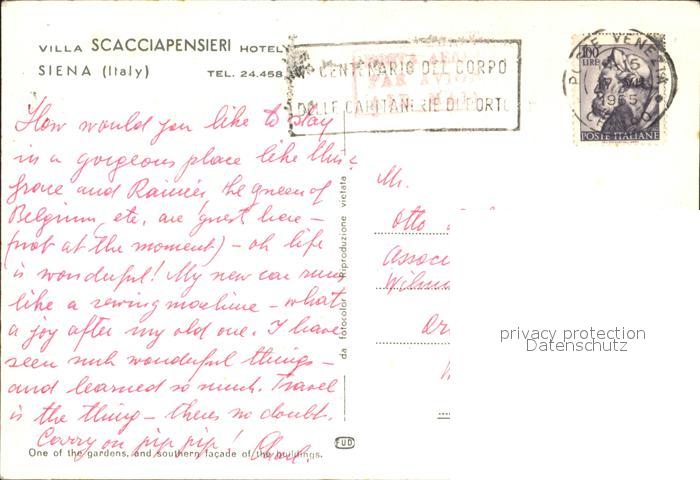 VILLA SCACCIAPENSIERI HOTEL
SIENA (Italy) TEL. 24.458
How would you like to stay
in a gorgeous place like this?
Grace and Rainier, the queen of
Belgium, etc, are guest here –
(not at the moment) – oh life
is wonderful! My new car runs
like a sewing machine – what
a joy after my old one. I have
seen such wonderful things –
and learned so much. Travel
is the thing – theres no doubt.
Carry on pip pip!
One of the gardens, and southern façade of the buildings.
da fotocolor Riproduzione vietata
FUD
CENTENARIO DEL CORPO
DELLE CAPITANERIE DI PORTO
PAR AVION
VENEZIA
1965
100
LIRE
POSTE ITALIANE
Mr.
Otto
Associ
Wilm
privacy protection
Datenschutz